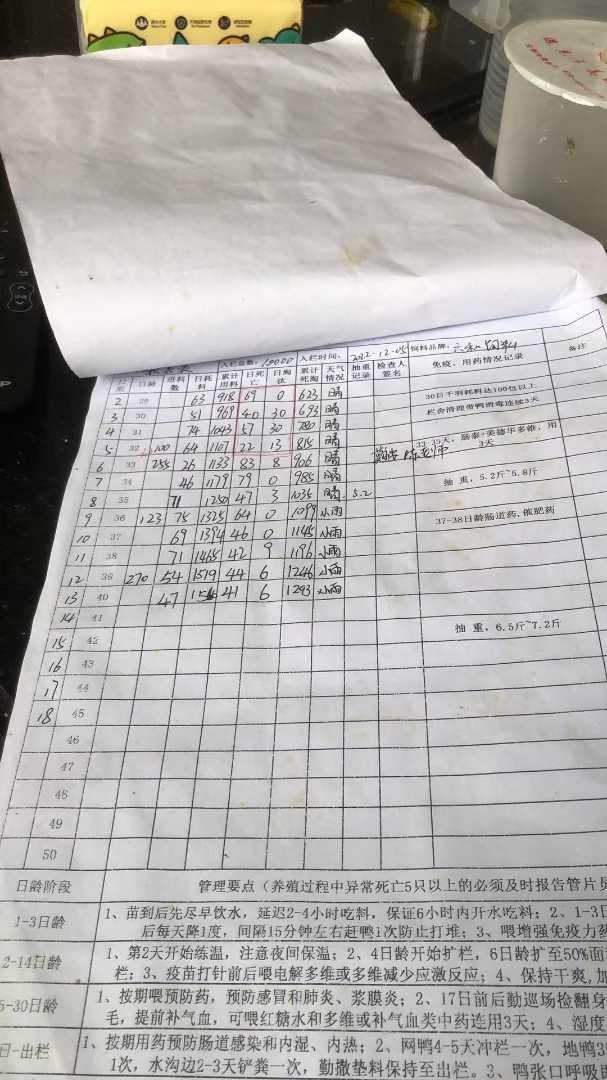 入栏总数: 10000 入栏时间: 2022.12.05 饲料品牌: 六和
日龄 进料数 日耗料 累计用料 日死亡 日淘汰 累计死淘 天气情况 抽重记录 检查人签名 免疫、用药情况记录 备注
2 29 63 918 69 0 623 晴 30日干别耗料达100包以上
3 30 51 969 40 30 693 晴 栏舍清理带鸭消毒连续3天
4 31 74 1043 57 30 780 晴
5 32 100 64 1107 22 13 815 晴 33-35天,肠泰+美德华多维,用3天
6 33 255 26 1133 83 8 906 晴
7 34 46 1179 79 0 985 晴 抽重,5.2斤~5.8斤
8 35 71 1250 47 3 1035 晴 5.2
9 36 123 75 1325 64 0 1099 小雨 37-38日龄肠道药、催肥药
10 37 69 1394 46 0 1145 小雨
11 38 71 1465 42 9 1196 小雨
12 39 270 54 1519 44 6 1246 小雨
13 40 47 41 6 1293 小雨
14 41
15 42 抽重,6.5斤~7.2斤
16 43
17 44
18 45
46
47
48
49
50
日龄阶段 管理要点(养殖过程中异常死亡5只以上的必须及时报告管片员
1-3日龄 1、苗到后先尽早饮水,延迟2-4小时吃料,保证6小时内开水吃料;2、1-3日
后每天降1度,间隔15分钟左右赶鸭1次防止打堆;3、喂增强免疫力药
2-14日龄 1、第2天开始练温,注意夜间保温;2、4日龄开始扩栏,6日龄扩至50%面
栏;3、疫苗打针前后喂电解多维或多维减少应激反应;4、保持干爽,加
5-30日龄 1、按期喂预防药,预防感冒和肺炎、浆膜炎;2、17日前后勤巡场检翻身
毛,提前补气血,可喂红糖水和多维或补气血类中药连用3天;4、湿度
日-出栏 1、按期用药预防肠道感染和内湿、内热;2、网鸭4-5天冲栏一次,地鸭3
1次,水沟边2-3天铲粪一次,勤撒垫料保持至出栏。3、鸭张口呼吸